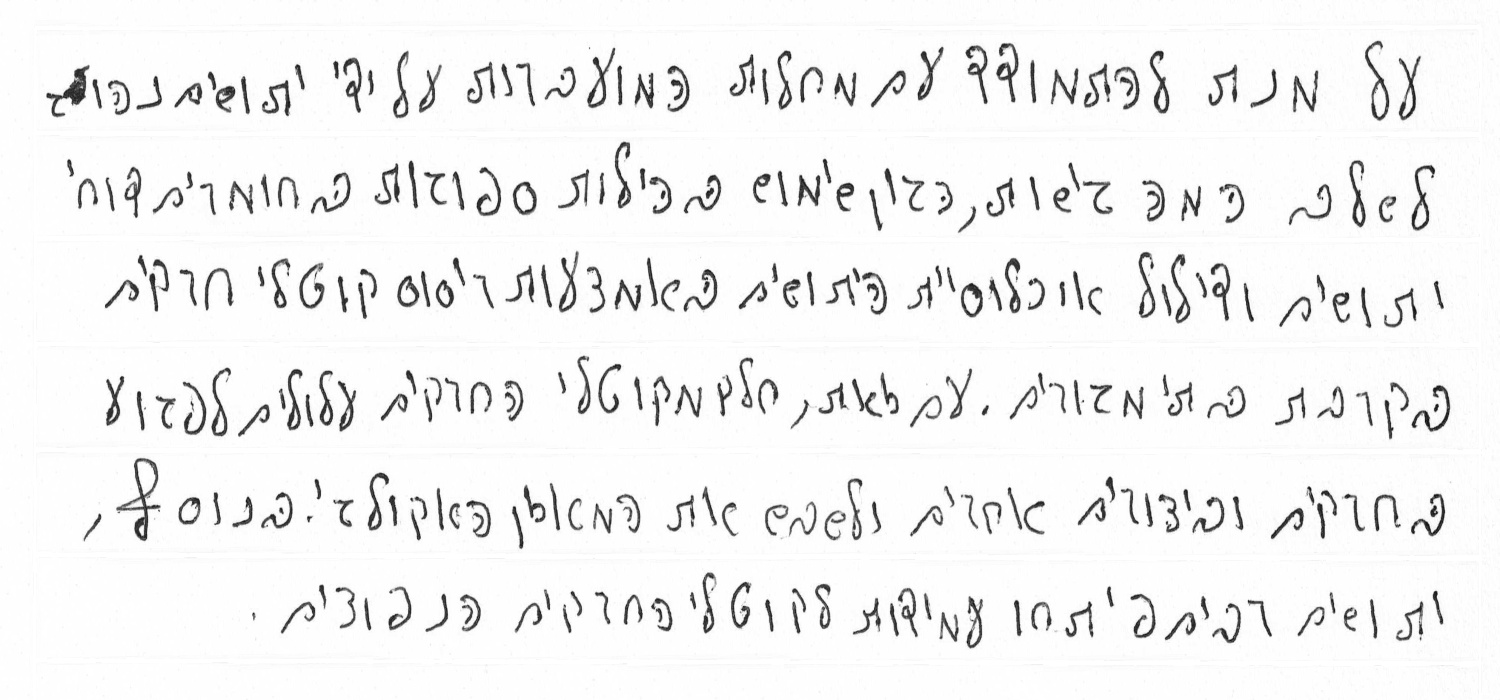 על מנת להתמודד עם מחלות המועברות על ידי יתושים נהוג
לשלב כמה גישות, כגון שימוש בכילות ספוגות בחומרים דוחי
יתושים ודילול אוכלוסיית היתושים באמצעות ריסוס קוטלי חרקים
בקרבת בתי מגורים. עם זאת, חלק מקוטלי החרקים עלולים לפגוע
בחרקים וביצורים אחרים ולשבש את המאזן האקולגי. בנוסף,
יתושים רבים פיתחו עמידות לקוטלי החרקים הנפוצים.